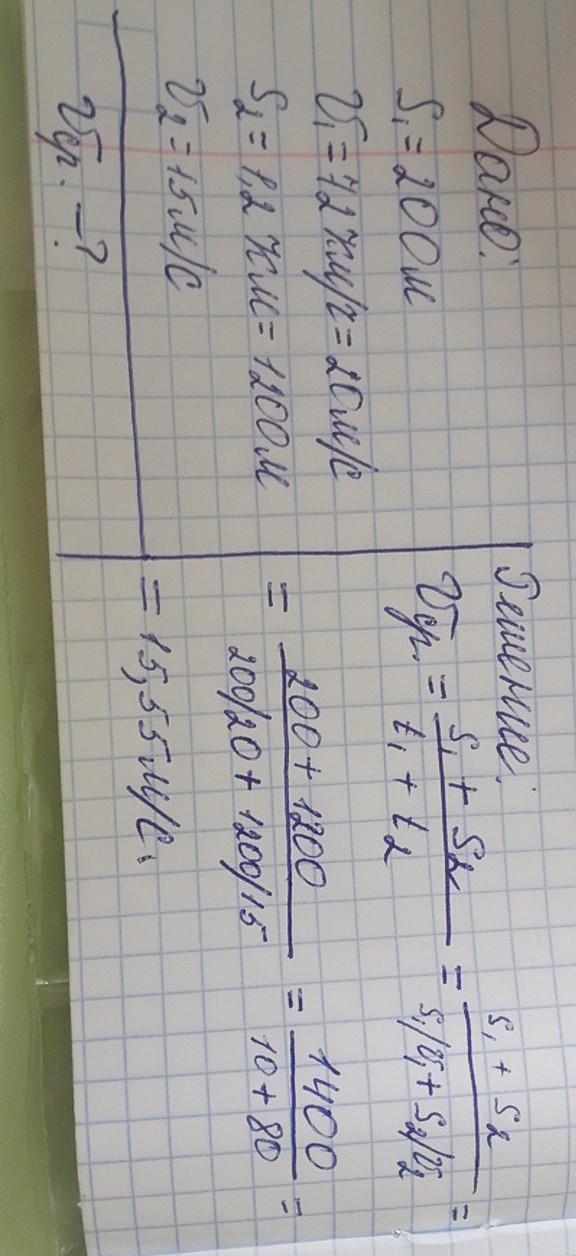 Дано:
S₁ = 200м
V₁ = 72 км/ч = 20м/с
S₂ = 1,2 км = 1200м
V₂ = 15м/с
Vср. – ?
Решение:
Vср. = (S₁ + S₂)/(t₁ + t₂) = (S₁ + S₂)/(S₁/V₁ + S₂/V₂) =
= (200 + 1200)/(200/20 + 1200/15) = 1400/(10 + 80) =
= 15,55м/с.